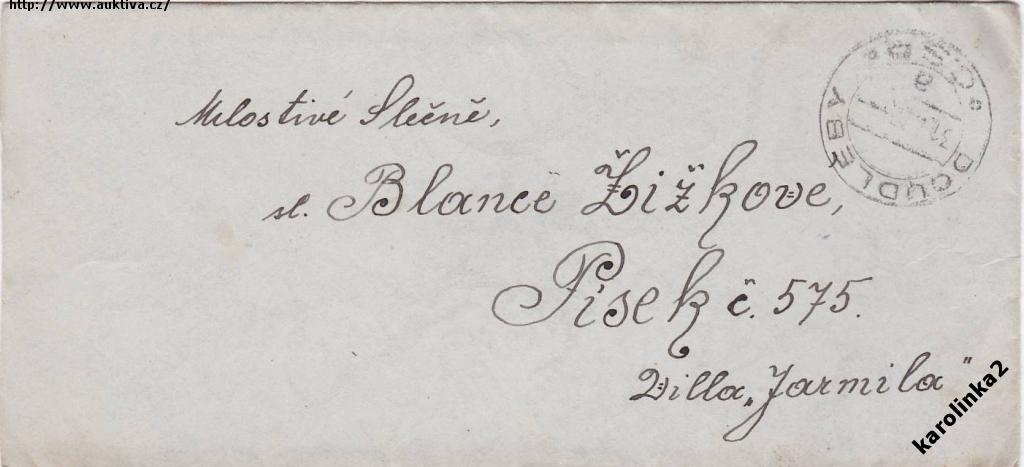 http://www.auktiva.cz/
DOUDLEBY
Milostivé Slečně,
sl. Blance Žižkove,
Pisek č. 575.
Villa „Jarmila"
karolinka2